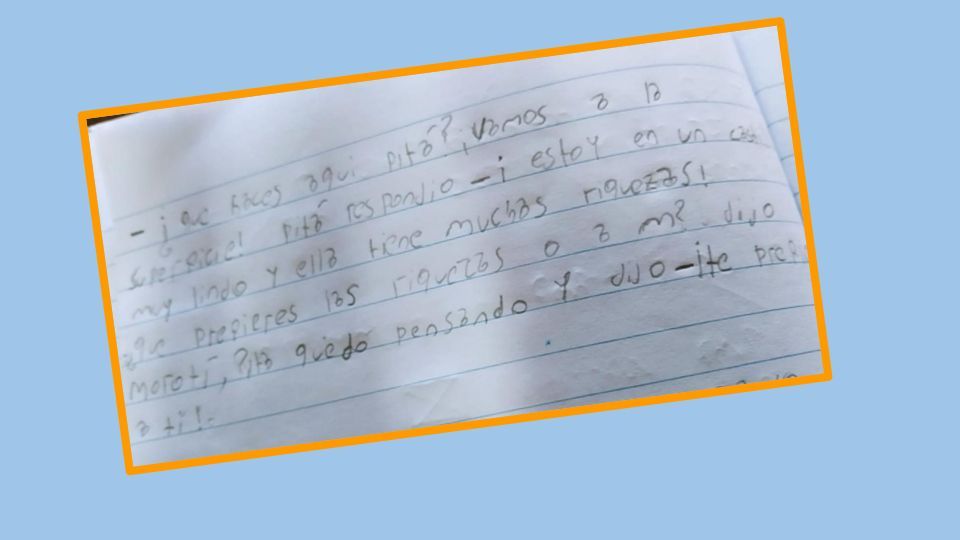 - ¿que haces aqui pitá? ¡vamos a la
superficie! pitá respondio -¡ estoy en un
muy lindo y ella tiene muchas riquezas!
¿que prefieres las riquezas o a mi? dijo
moroti, Pitá quedó pensando y dijo -¡te
a ti!.